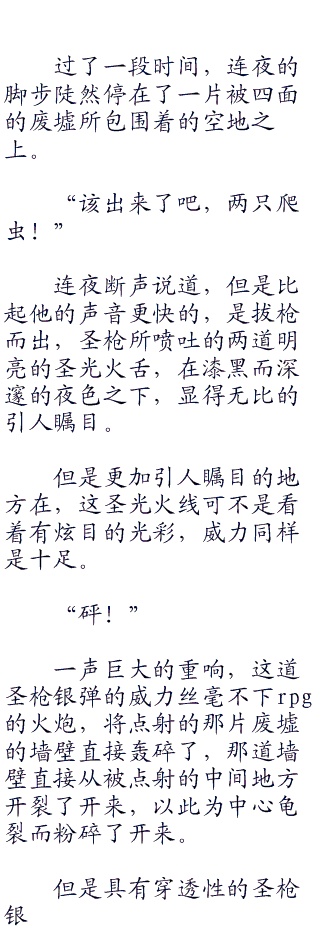 过了一段时间，连夜的
脚步陡然停在了一片被四面
的废墟所包围着的空地之
上。
“该出来了吧，两只爬
虫！”
连夜断声说道，但是比
起他的声音更快的，是拔枪
而出，圣枪所喷吐的两道明
亮的圣光火舌，在漆黑而深
邃的夜色之下，显得无比的
引人瞩目。
但是更加引人瞩目的地
方在，这圣光火线可不是看
着有炫目的光彩，威力同样
是十足。
“砰！”
一声巨大的重响，这道
圣枪银弹的威力丝毫不下rpg
的火炮，将点射的那片废墟
的墙壁直接轰碎了，那道墙
壁直接从被点射的中间地方
开裂了开来，以此为中心龟
裂而粉碎了开来。
但是具有穿透性的圣枪
银